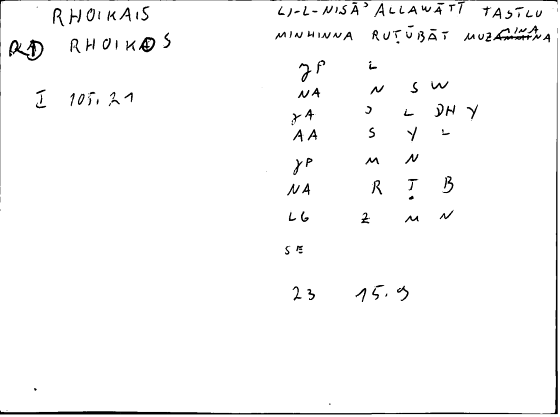 RHOIKAIS
RHOIKOS
I 105.21
LI-L-NISĀʾ ALLAWĀTĪ TASĪLU
MINHINNA RUṬŪBĀT MUZMINA
γP L
NA N S W
γA ʾ L DH Y
AA S Y L
γP M N
NA R Ṭ B
LG Z M N
SE
23 15.9